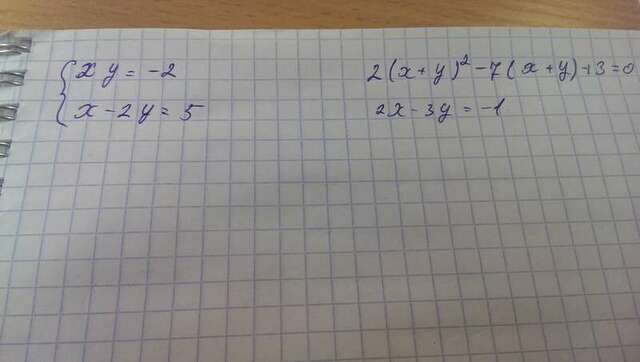 { x y = -2
x - 2y = 5
2(x+y)² - 7(x+y)+3=0
2x - 3y = -1